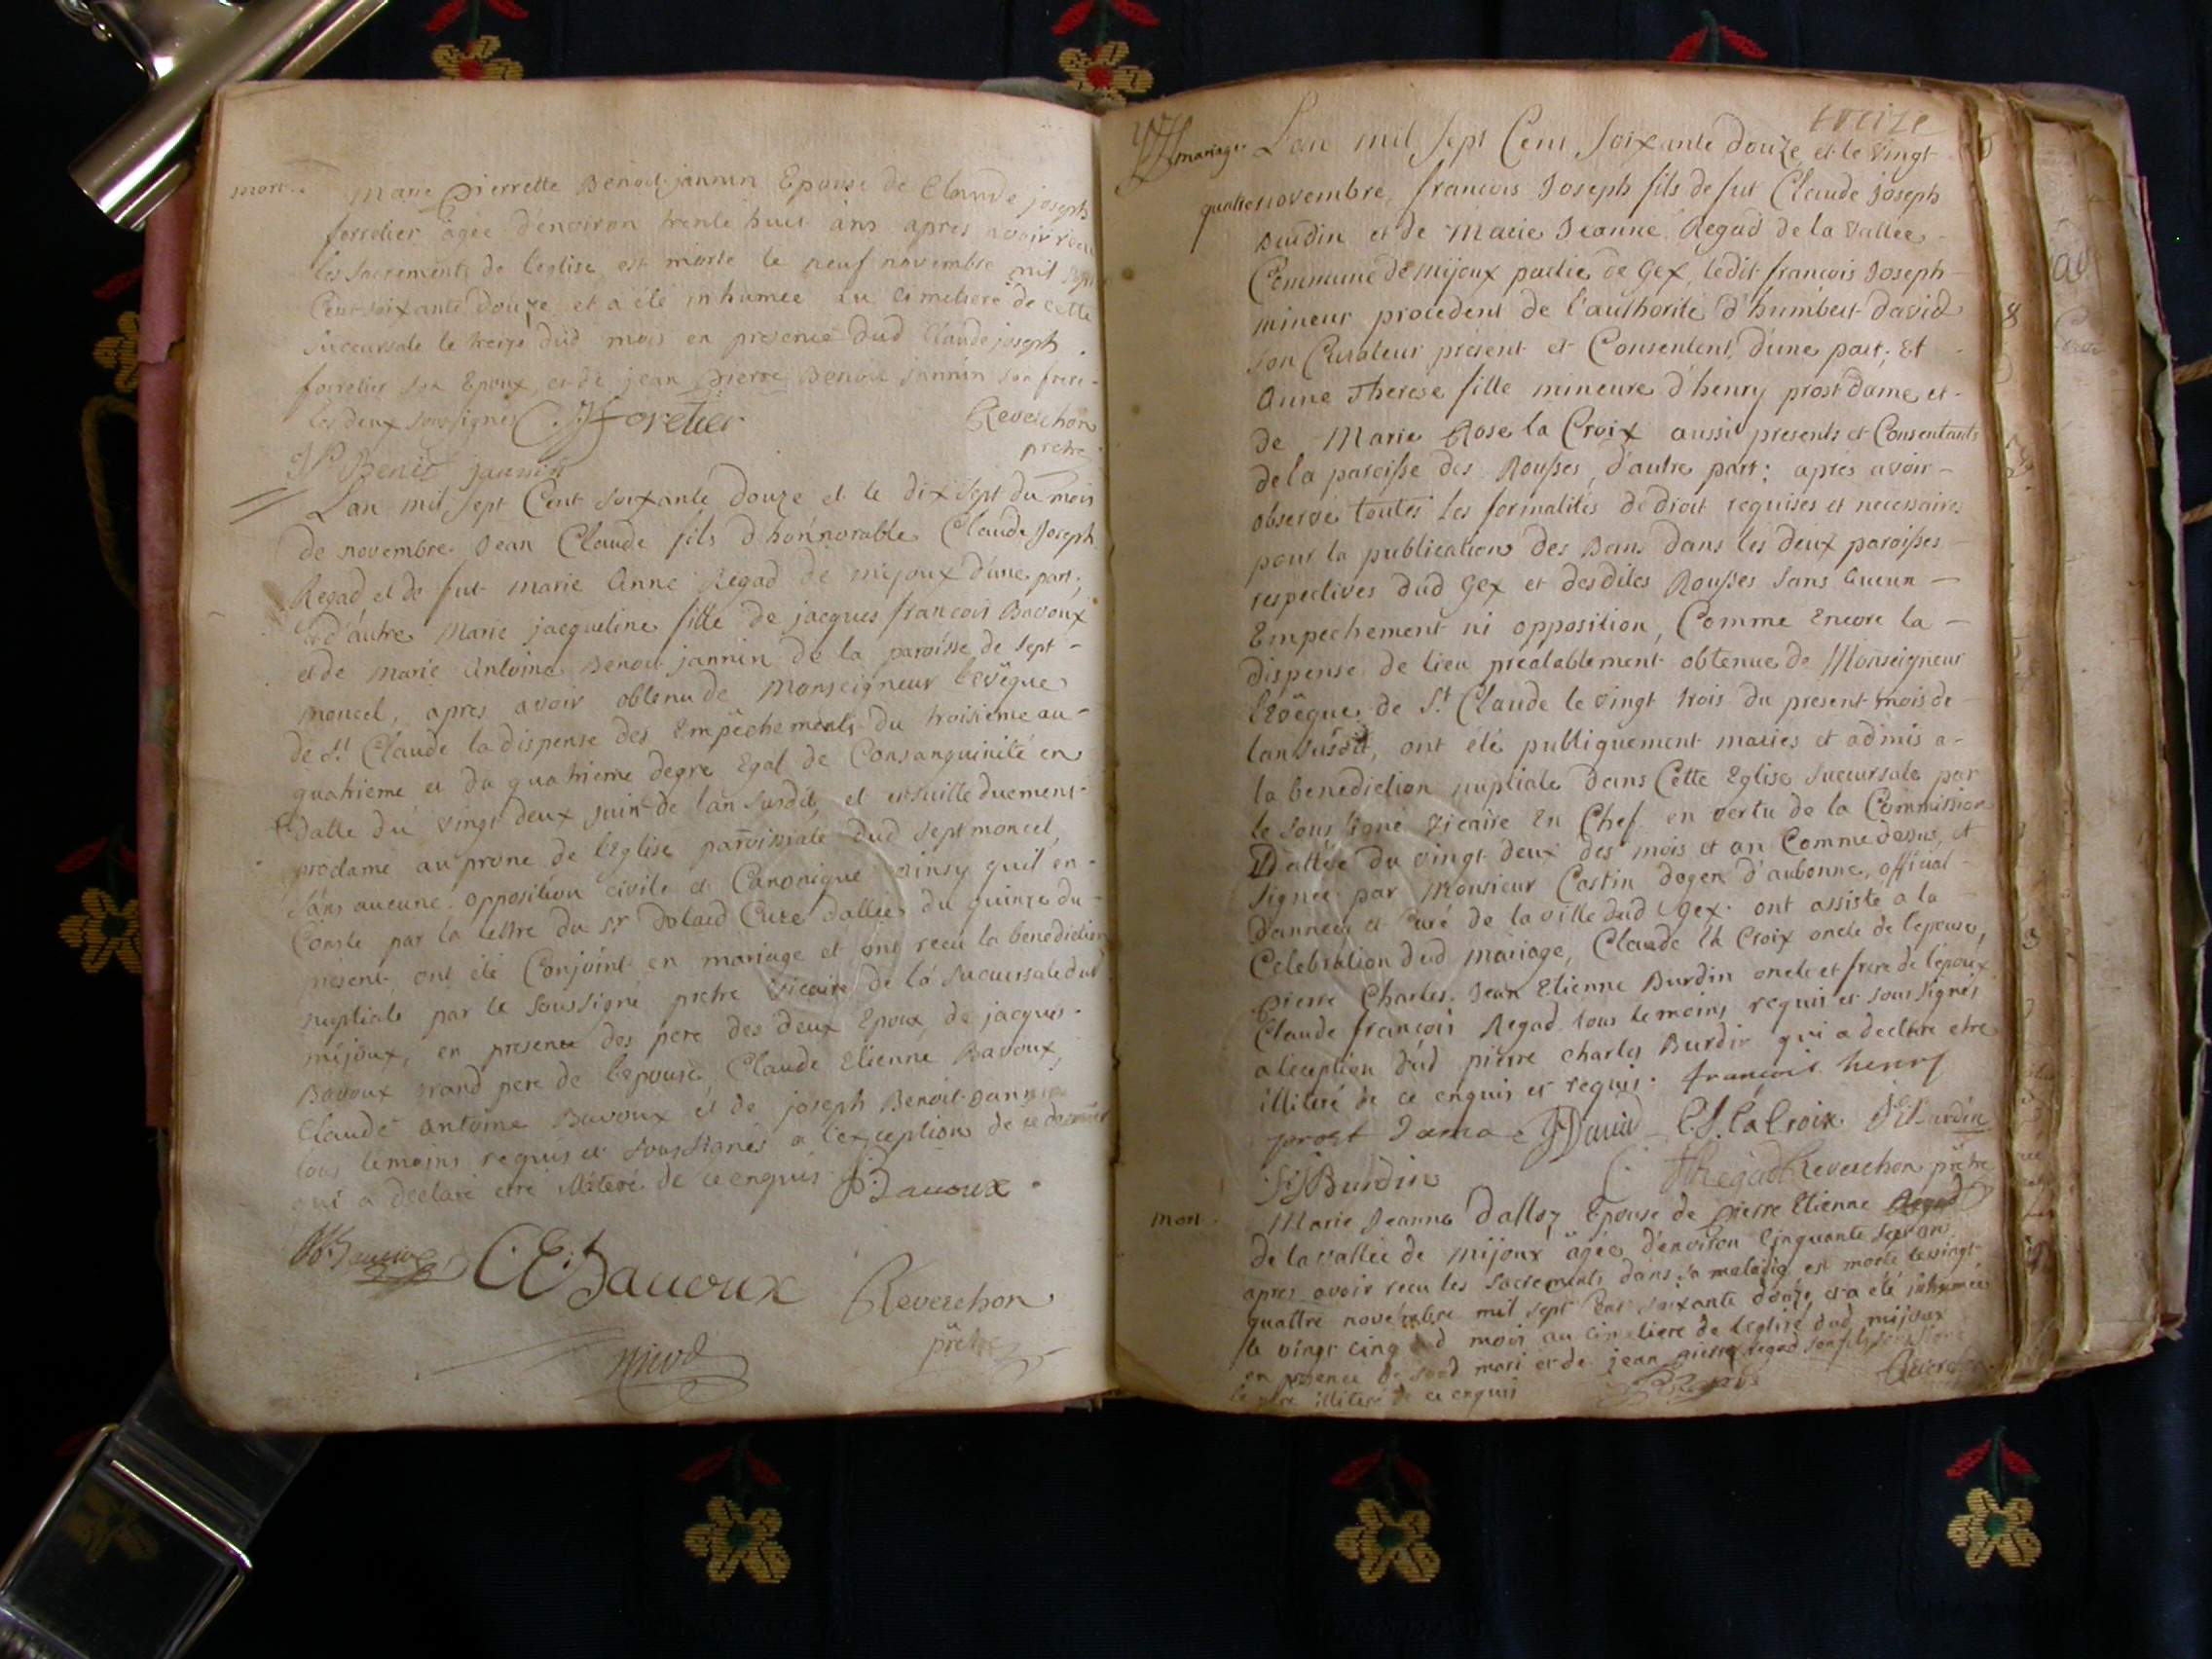 mort.
Marie Pierrette Benoit-jannin Epouse de Claude joseph
forretier âgée d'environ trente huit ans apres avoir recu
les Sacrements de l'eglise est morte le neuf novembre mil sept
Cent soixante douze et a été inhumée au cimetiere de cette
succursale le treize dud mois en presence dud Claude joseph
forretier son Epoux, et de jean pierre Benoit jannin son frere
les deux soussignés C. J. foretier Reverchon
prêtre
J P Benit jannin
L'an mil sept Cent soixante douze et le dix sept du mois
de novembre Jean Claude fils d'honnorable Claude Joseph
Regad et de fut marie Anne Regad de mijoux d'une part;
et d'autre Marie jacqueline fille de jacques francois Bavoux
et de marie Antoine Benoit jannin de la paroisse de sept-
moncel, apres avoir obtenu de Monseigneur l'evêque
de St Claude la dispense des Empêchements du troisieme au-
quatrieme et du quatrieme degre Egal de Consanguinité en
datte du vingt deux juin de l'an susdit, et ensuitte duement
proclamé au prone de l'Eglise paroissiale dud septmoncel,
sans aucune opposition civile et Canonique ainsy quil en-
Conste par la lettre du Sr Dolard Curé dattée du quinze du-
present, ont été Conjoint en mariage et ont recu la benediction
nuptiale par le soussigné pretre vicaire de la succursale dud
mijoux, en presence des pere des deux Epoux, de jacques-
Bavoux grand pere de l'epouse, Claude Etienne Bavoux,
Claude antoine Bavoux et de joseph Benoit-Jannin
tous temoins requis et soussignés a l'exception de ce dernier
qui a declaré etre illiteré de ce enquis J Bavoux
C E Bavoux Reverchon
prêtre
treize
mariage L'an mil sept Cent soixante douze, et le vingt
quatre novembre, francois Joseph fils de fut Claude Joseph
Burdin et de Marie Jeanne Regad de la vallée
Commune de Mijoux partie de Gex, ledit francois Joseph
mineur procedent de l'authorité d'humbert David
son Curateur present et Consentent, d'une part; Et
Anne Therese fille mineure d'henry prost dame, et
de Marie Rose la Croix aussi presents et Consentants
de la paroisse des Rousses, d'autre part; après avoir
observé toutes les formalités de droit requises et necessaires
pour la publication des Bans dans les deux paroisses
respectives dud Gex et desdites Rousses sans Aucun
Empechement ni opposition, Comme Encore la
dispense de lieu prealablement obtenue de Monseigneur
l'Evêque de St Claude le vingt trois du present mois de
lan susdit, ont été publiquement mariés et admis a
la benediction nuptiale dans Cette Eglise succursale par
le soussigné vicaire En Chef en vertu de la Commission
Dattée du vingt deux des mois et an Comme dessus, et
signée par Monsieur Castin doyen d'aubonne, official
d'annecy et Curé de la ville dud Gex. ont assisté a la
Celebration dud mariage, Claude la Croix oncle de l'epouse,
pierre Charles, Jean Etienne Burdin oncle et frere de l'epoux
Claude françois Regad tous temoins requis et soussignés
a l'exception dud pierre charles Burdin qui a declaré etre
illiteré de ce enquis et requis. françois henry
prost Dama David C. J. la Croix J E Burdin
F J Burdin C. f Regad Reverchon prêtre
mort.
Marie Jeanne Dalloz Epouse de pierre Etienne Regad
de la vallée de mijoux âgée d'environ Cinquante sept ans
apres avoir recu les sacrements dans sa maladie est morte le vingt
quattre novembre mil sept Cent soixante douze, et a été inhumée
le vingt cinq dud mois au cimetiere de l'eglise dud mijoux
en presence de sond mari et de jean pierre regad son fils soussigné
le pere illiteré de ce enquis Reverchon